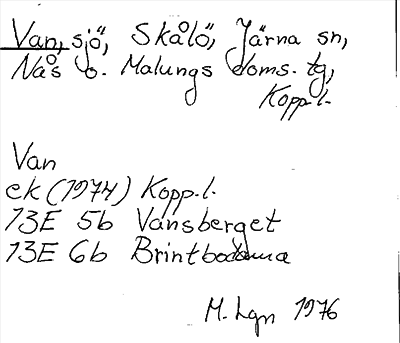 Van, sjö, Skålö, Järna sn,
Nås o. Malungs doms. tg,
Kopp. l.
Van
ek (1974) Kopp. l.
13E 5b Vansberget
13E 6b Brintbodarna
M. Lgn 1976